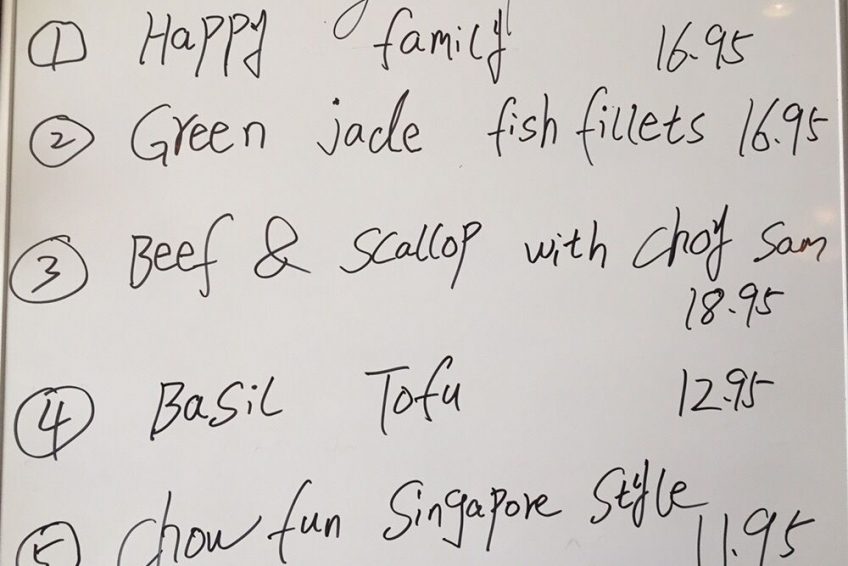 ① Happy family 16.95
② Green jade fish fillets 16.95
③ Beef & Scallop with Choy Sam
18.95
④ Basil Tofu 12.95
⑤ Chow fun Singapore Style 11.95